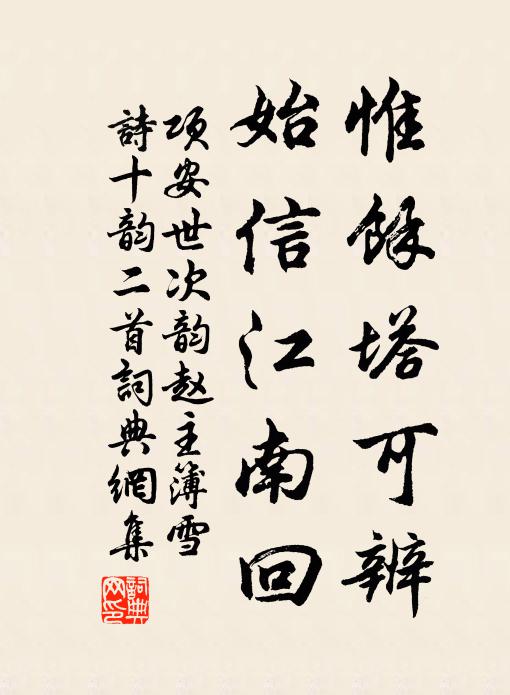 惟餘塔可辨
始信江南回
项安世次韵赵主簿雪
詩十韵二首詞典網集